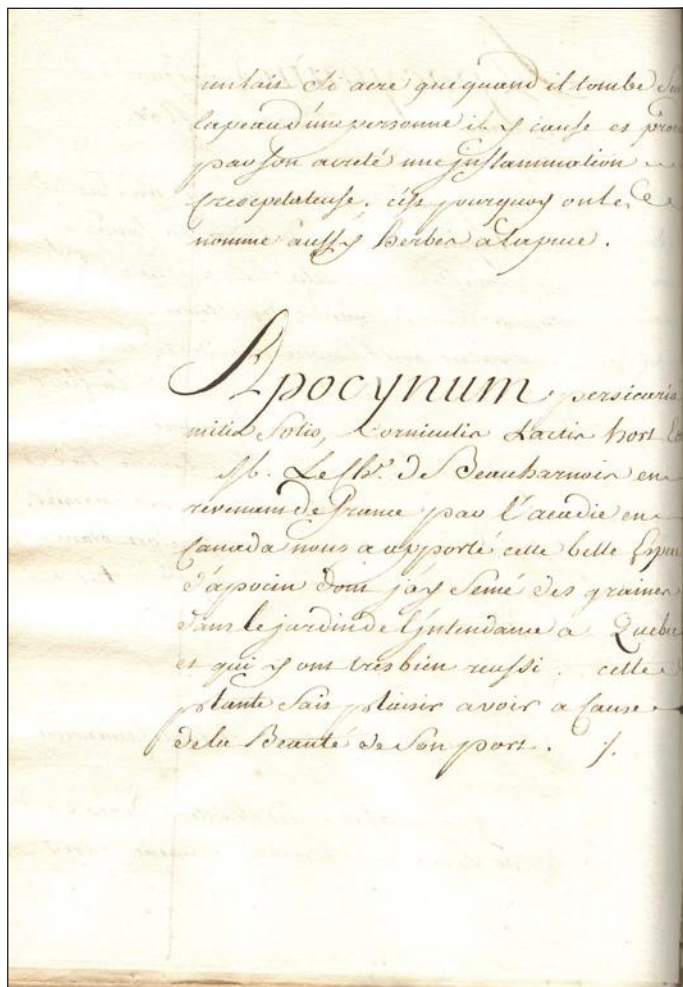 un lait si acre que quand il tombe Sur
la peau d'une personne il y cause et prod
par son acreté une jnflammation
Eresepelateuse. c'est pourquoy on le
nomme aussy herbe a la puce.
Apocynum persicaria
mitis folio, Corniculis Lactis hort
Le Chr. De Beauharnois en
revenant de France par l'acadie en
Canada nous a apporté cette belle Espece
d'apocin dont j'ay Semé des graines
dans le jardin de l'jntendance a Quebe
et qui y ont tres bien reussi. cette
plante fait plaisir a voir a Cause
de la Beauté de Son port. /.